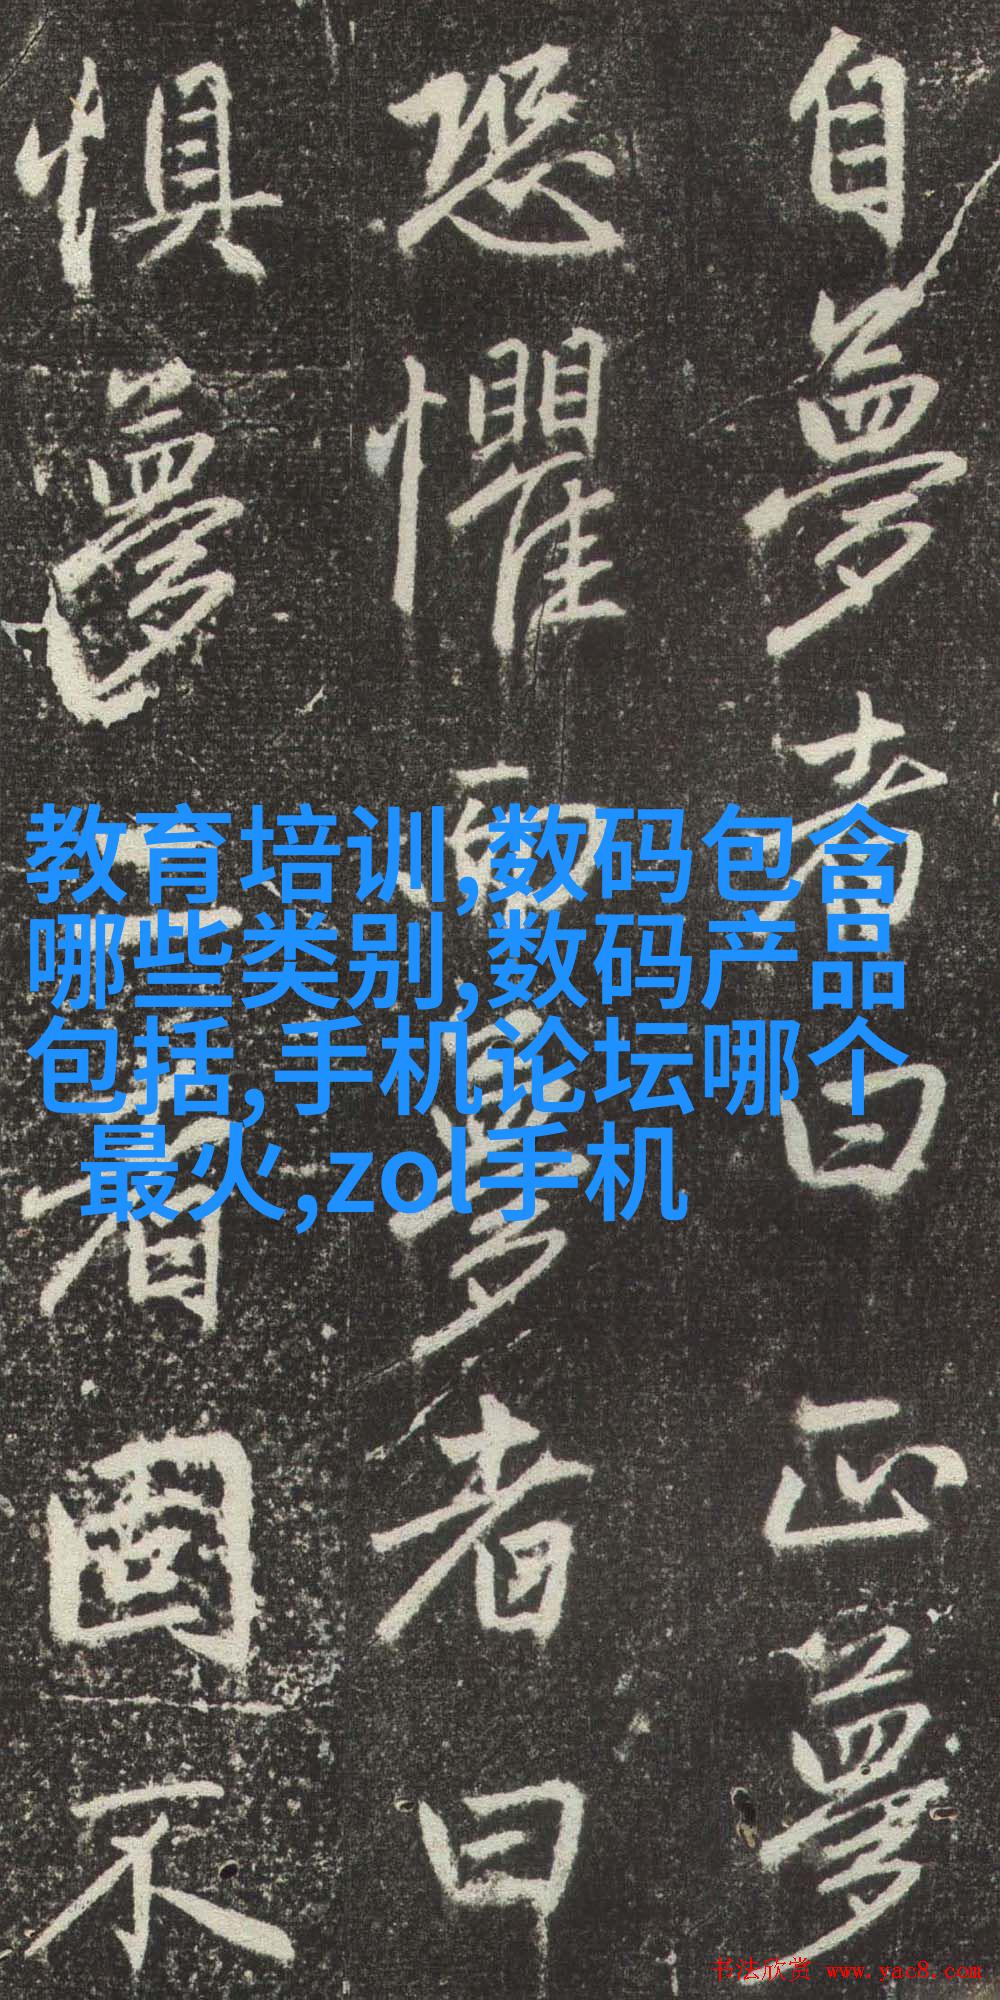 自夢者曰正夢
恐懼而夢者曰
惧夢二者固不
教育培训,数码包含
哪些类别,数码产品
包括,手机论坛哪个
最火,zol手机
书法欣赏 www.yac8.com